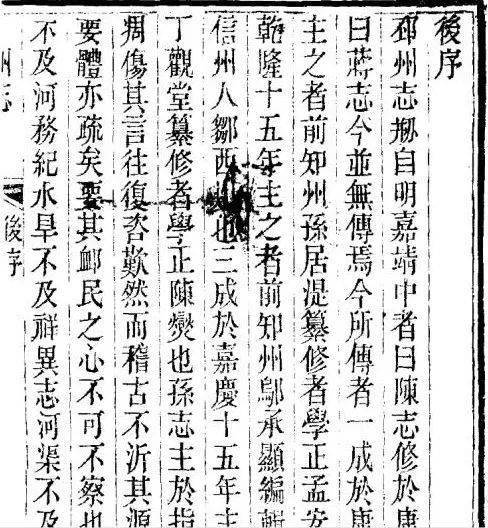 後序
邳州志剙自明嘉靖中者曰陳志修於康
曰蔣志今並無傳焉今所傳者一成於康
主之者前知州孫居湜纂修者學正孟安
乾隆十五年主之者前知州鄔承顯編輯
信州人鄒西也三成於嘉慶十五年主
丁觀堂纂修者學正陳燮也孫志主於指
凋傷其言往復咨歎然而稽古不沂其源
要體亦疏矣要其卹民之心不可不察也
不及河務紀水旱不及祥異志河渠不及
州志
後序